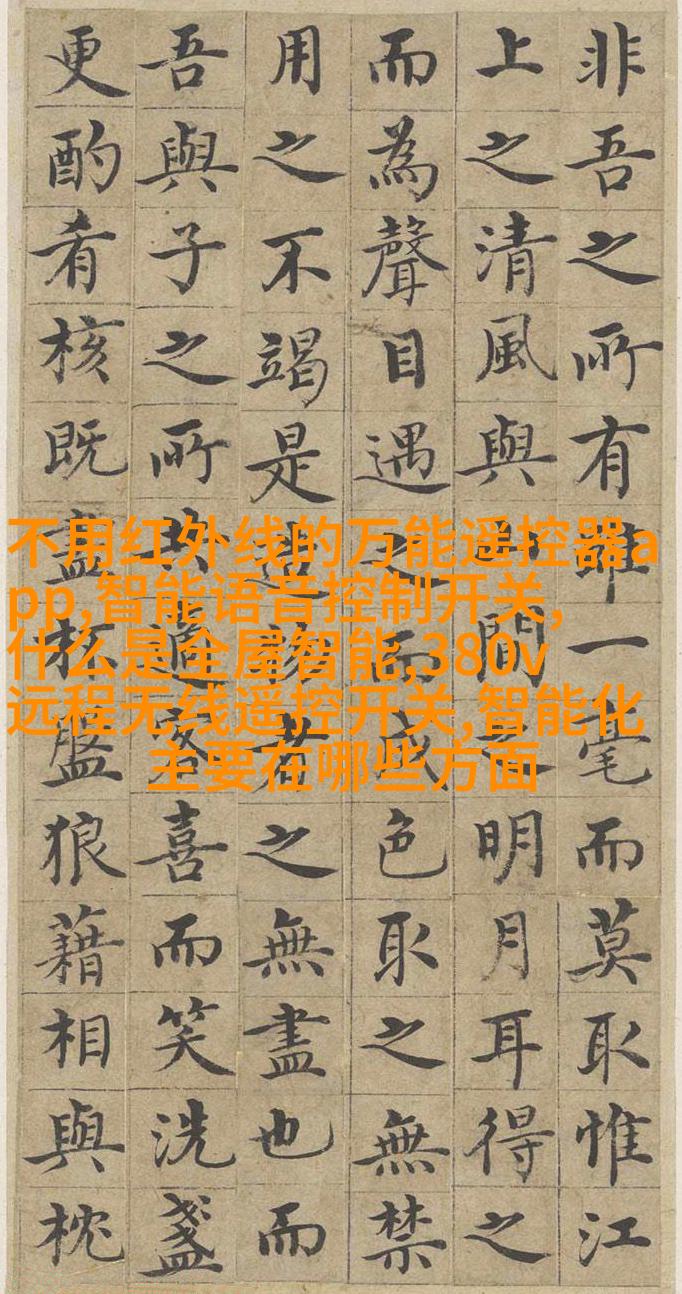 非吾之所有雖一毫而莫取惟江
上之清風與山間之明月耳得之
而為聲目遇之而成色取之無禁
用之不竭是造者之無盡也而
吾與子之所共適客喜而笑洗盞
更酌肴核既盡杯盤狼藉相與枕
不用红外线的万能遥控器a
pp,智能语音控制开关,
什么是全屋智能,380v
远程无线遥控开关,智能化
主要在哪些方面